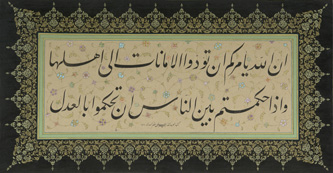 ان الله یامرکم ان تودوا الامانات الی اهلها
واذا حکمتم بین الناس ان تحکموا بالعدل